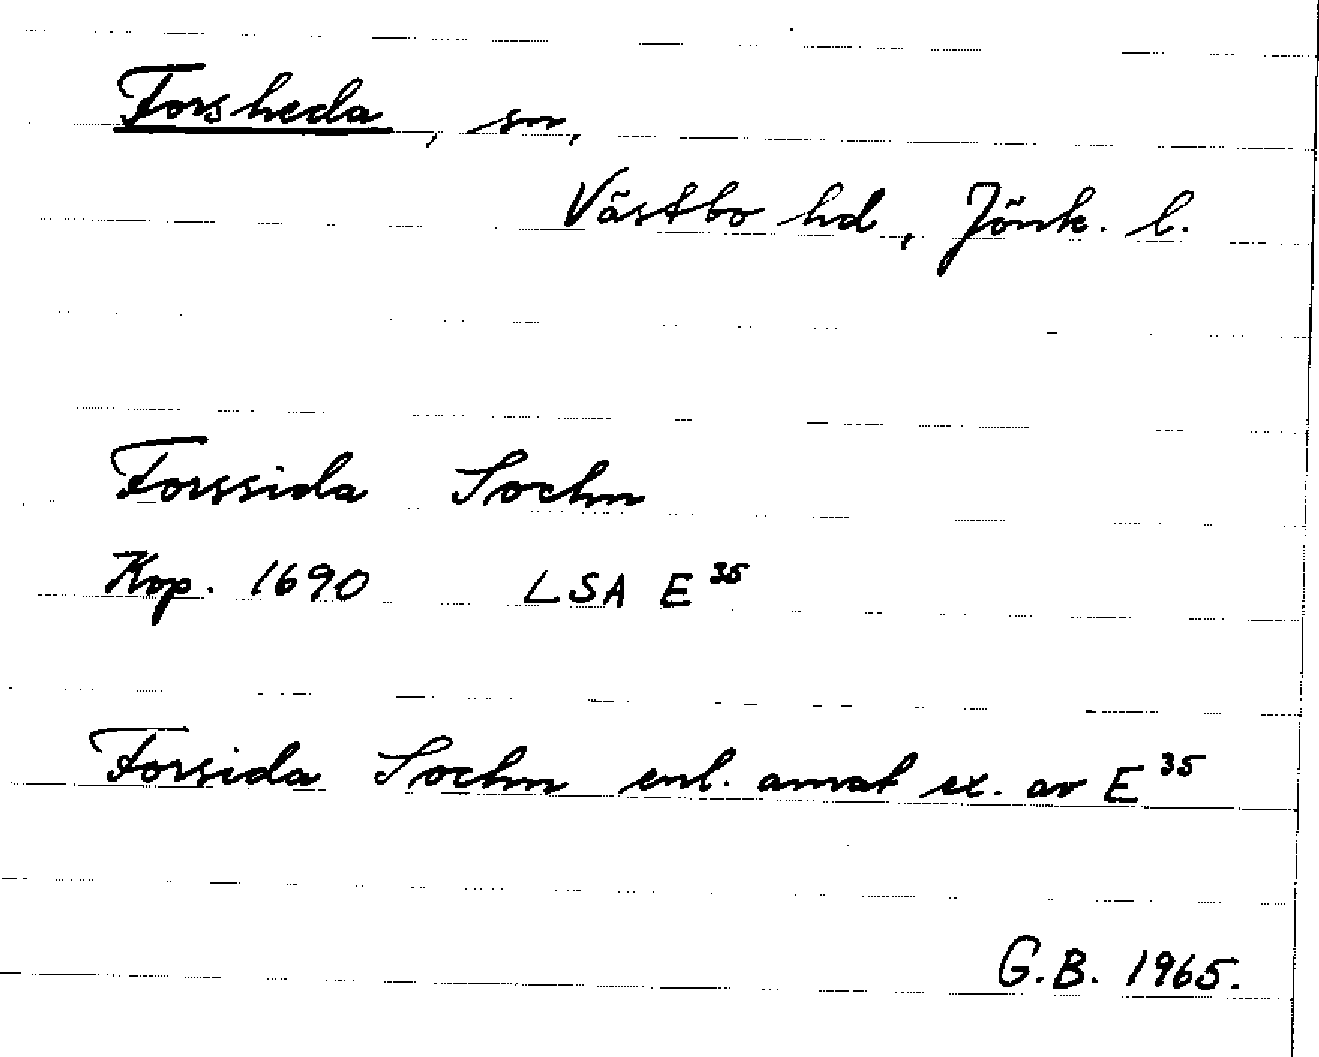 Forsheda, sn,
Västbo hd, Jönk. l.
Forssida Sochn
Kop. 1690 LSA E³⁵
Forsida Sochn enl. annat ex. av E³⁵
G.B. 1965.